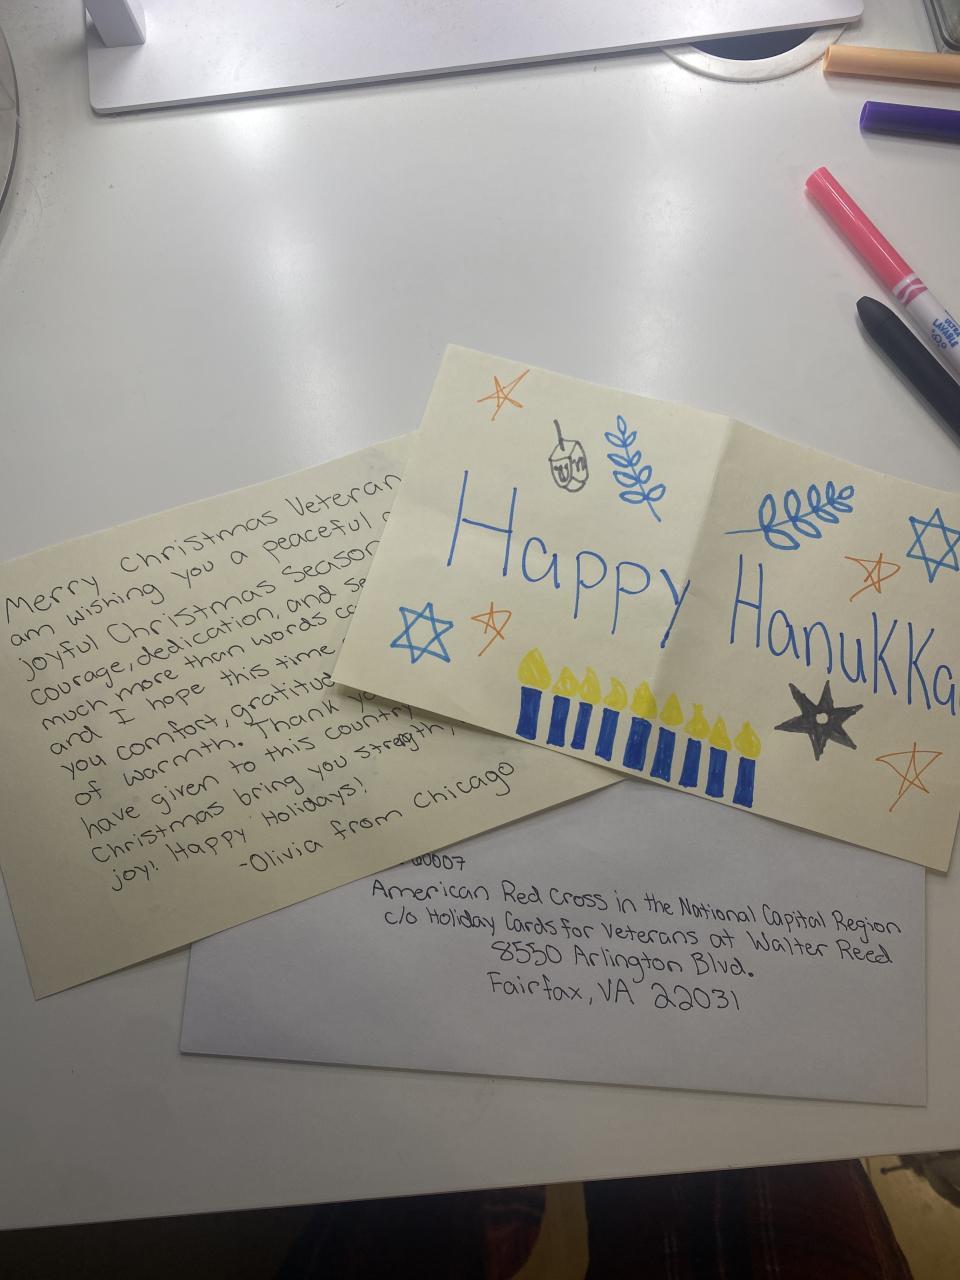 Merry Christmas Veteran
am wishing you a peaceful
joyful Christmas season
courage, dedication, and se
much more than words ca
and I hope this time
you comfort, gratitude
of warmth. Thank yo
have given to this country
Christmas bring you strength,
joy! Happy Holidays!
-Olivia from Chicago
Happy Hanukka
60007
American Red Cross in the National Capital Region
c/o Holiday Cards for Veterans at Walter Reed
8550 Arlington Blvd.
Fairfax, VA 22031